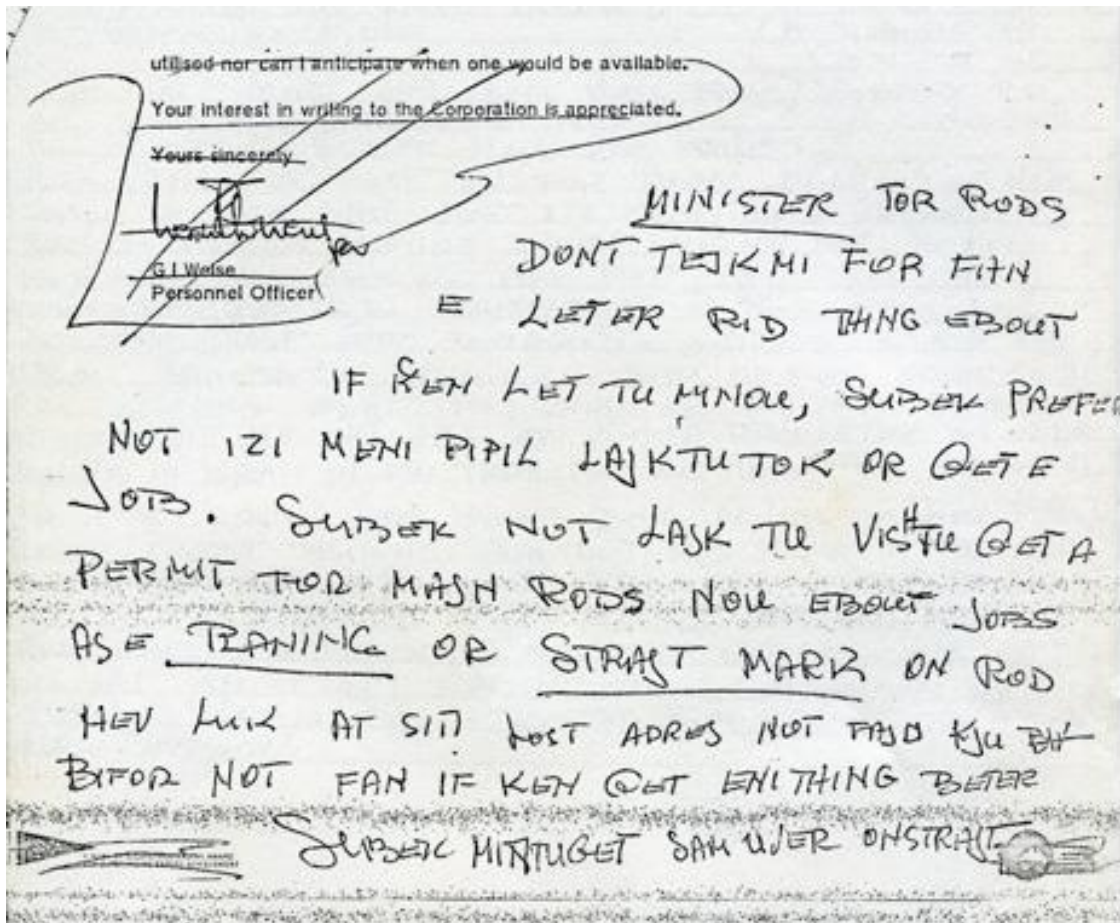 utilised nor can I anticipate when one would be available.
Your interest in writing to the Corporation is appreciated.
Yours sincerely
G I Weise
Personnel Officer
MINISTER FOR RODS
DONT TEJK MI FOR FAN
E LETER RID THING EBOUT
IF KEN LET TU MNOU, SUBEK PREFER
NOT IZI MENI PIPIL LAJK TU TOK OR GET E
JOB. SUBEK NOT LAJK TU VISH TU GET A
PERMIT FOR MAJN RODS NOU EBOUT JOBS
AS E TRANING OR STRAJT MARK ON ROD
HEV LUK AT SITI LOST ADRES NOT FAJD KJU
BIFOR NOT FAN IF KEN GET ENITHING BETER
SUBEK GET SAM ONSTRAJT